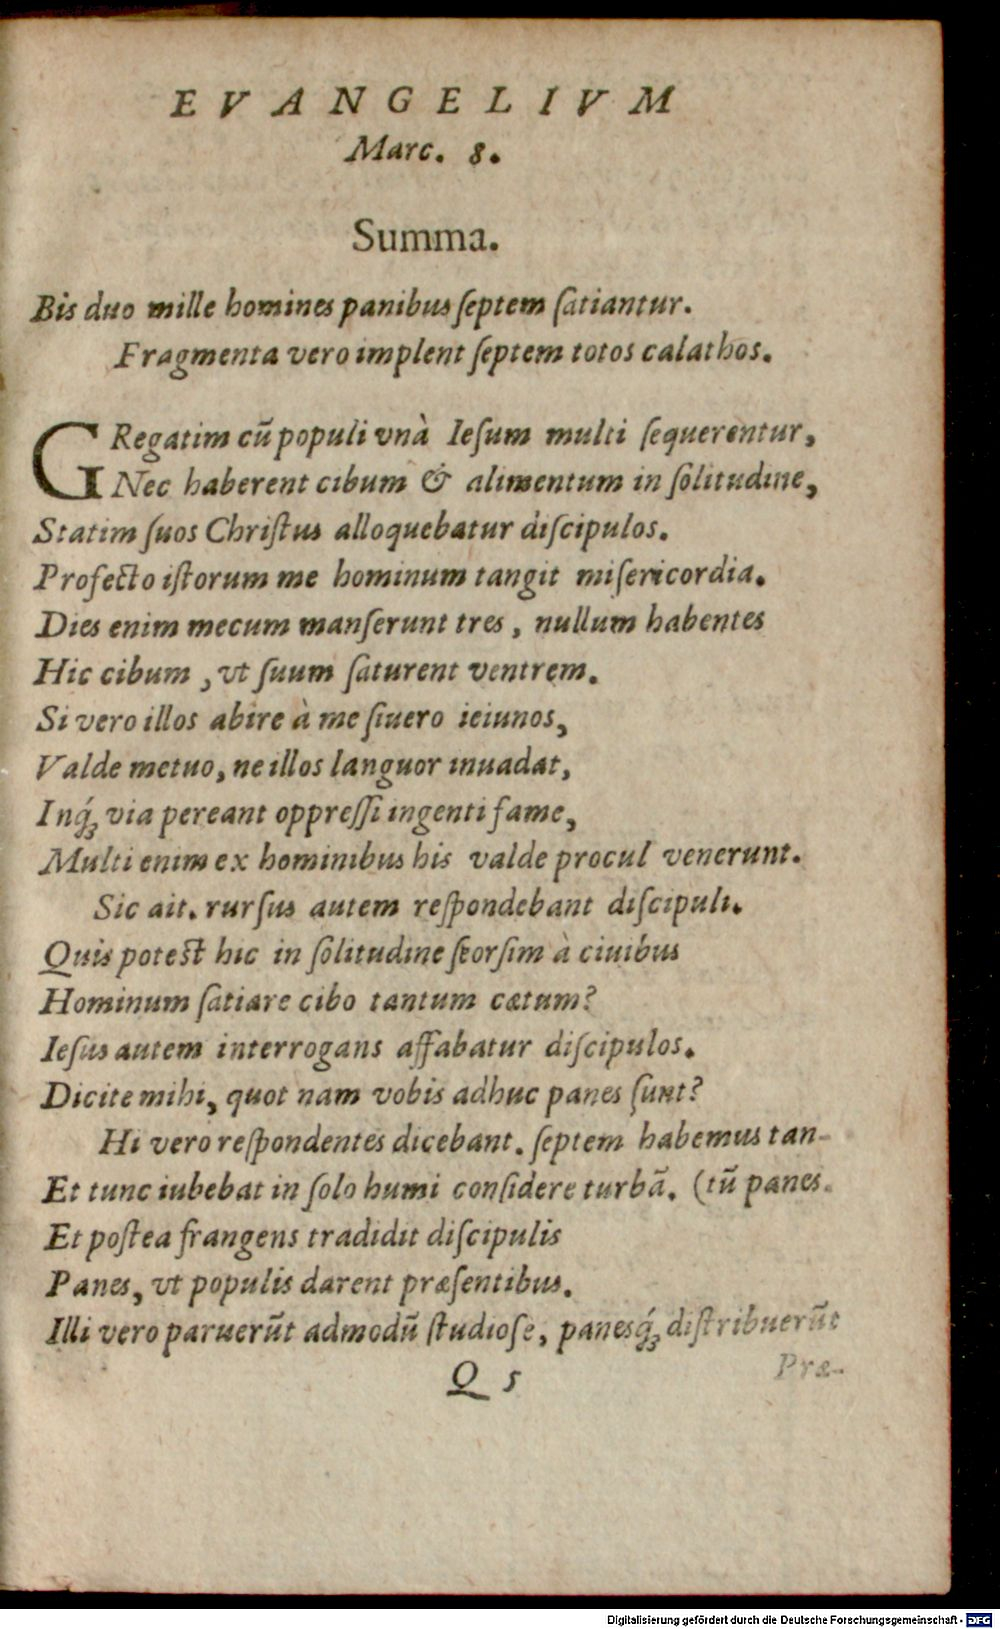 EVANGELIVM
Marc. 8.
Summa.
Bis duo mille homines panibus ſeptem ſatiantur.
Fragmenta vero implent ſeptem totos calathos.
GRegatim cũ populi vnà Ieſum multi ſequerentur,
Nec haberent cibum & alimentum in ſolitudine,
Statim ſuos Chriſtus alloquebatur diſcipulos.
Profecto iſtorum me hominum tangit miſericordia.
Dies enim mecum manſerunt tres, nullum habentes
Hic cibum, vt ſuum ſaturent ventrem.
Si vero illos abire à me ſiuero ieiunos,
Valde metuo, ne illos languor inuadat,
Inq́ꝫ via pereant oppreſſi ingenti fame,
Multi enim ex hominibus his valde procul venerunt.
Sic ait. rurſus autem reſpondebant diſcipuli.
Quis poteſt hic in ſolitudine ſeorſim à ciuibus
Hominum ſatiare cibo tantum cætum?
Ieſus autem interrogans affabatur diſcipulos.
Dicite mihi, quot nam vobis adhuc panes ſunt?
Hi vero reſpondentes dicebant. ſeptem habemus tan-
Et tunc iubebat in ſolo humi conſidere turbã. (tũ panes.
Et poſtea frangens tradidit diſcipulis
Panes, vt populis darent præſentibus.
Illi vero paruerũt admodũ ſtudioſe, panesq́ꝫ diſtribuerũt
Q 5
Præ-
Digitalisierung gefördert durch die Deutsche Forschungsgemeinschaft - DFG